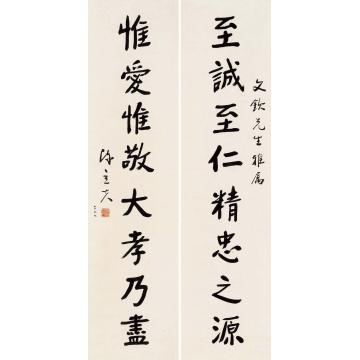 文欽先生雅屬
至誠至仁精忠之源
惟愛惟敬大孝乃盡
陳立夫